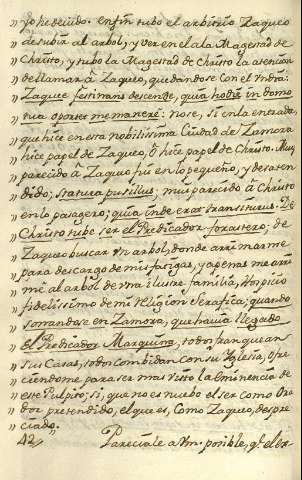 " yo he devido. En fin tubo el arbitrio Zaqueo
" de subir al arbol, y ver en el a la Magestad de
" Christo, y tubo la Magestad de Christo la atencion
" de llamar à Zaqueo, quedandose con el
" Zaquee festinans descende, quia hodie in domo
" tua oportet me manere: no se, si en la entrada,
" que hice en esta nobilissima Ciudad de Zamora
" hice papel de Zaqueo, ò hice papel de Christo. Muy
" parecido à Zaqueo fui en lo pequeño, y desaten
" dido; statura pusillus; mui parecido à Christo
" en lo pasagero; quia inde erat transiturus. De
" Christo tube ser el Predicador forastero; de
" Zaqueo buscar un arbol, donde arrimarme
" para descargo de mis fatigas, y apenas me arri
" mè al arbol de una ilustre familia, Hospicio
" fidelissimo de mi religion Serafica; quando
" sonandose en Zamora, que havia llegado
" el Predicador Marquina, todos franquean
" sus Casas, todos combidan con su Iglesia, ofre
" ciendome para ser mas visto la eminencia de
" esse Pulpito; si, que no es nuebo el ser como Ora
" dor pretendido, el que es, como Zaqueo, despre
" ciado."
42 Pareciale a Vm. posible, qe. el ex-